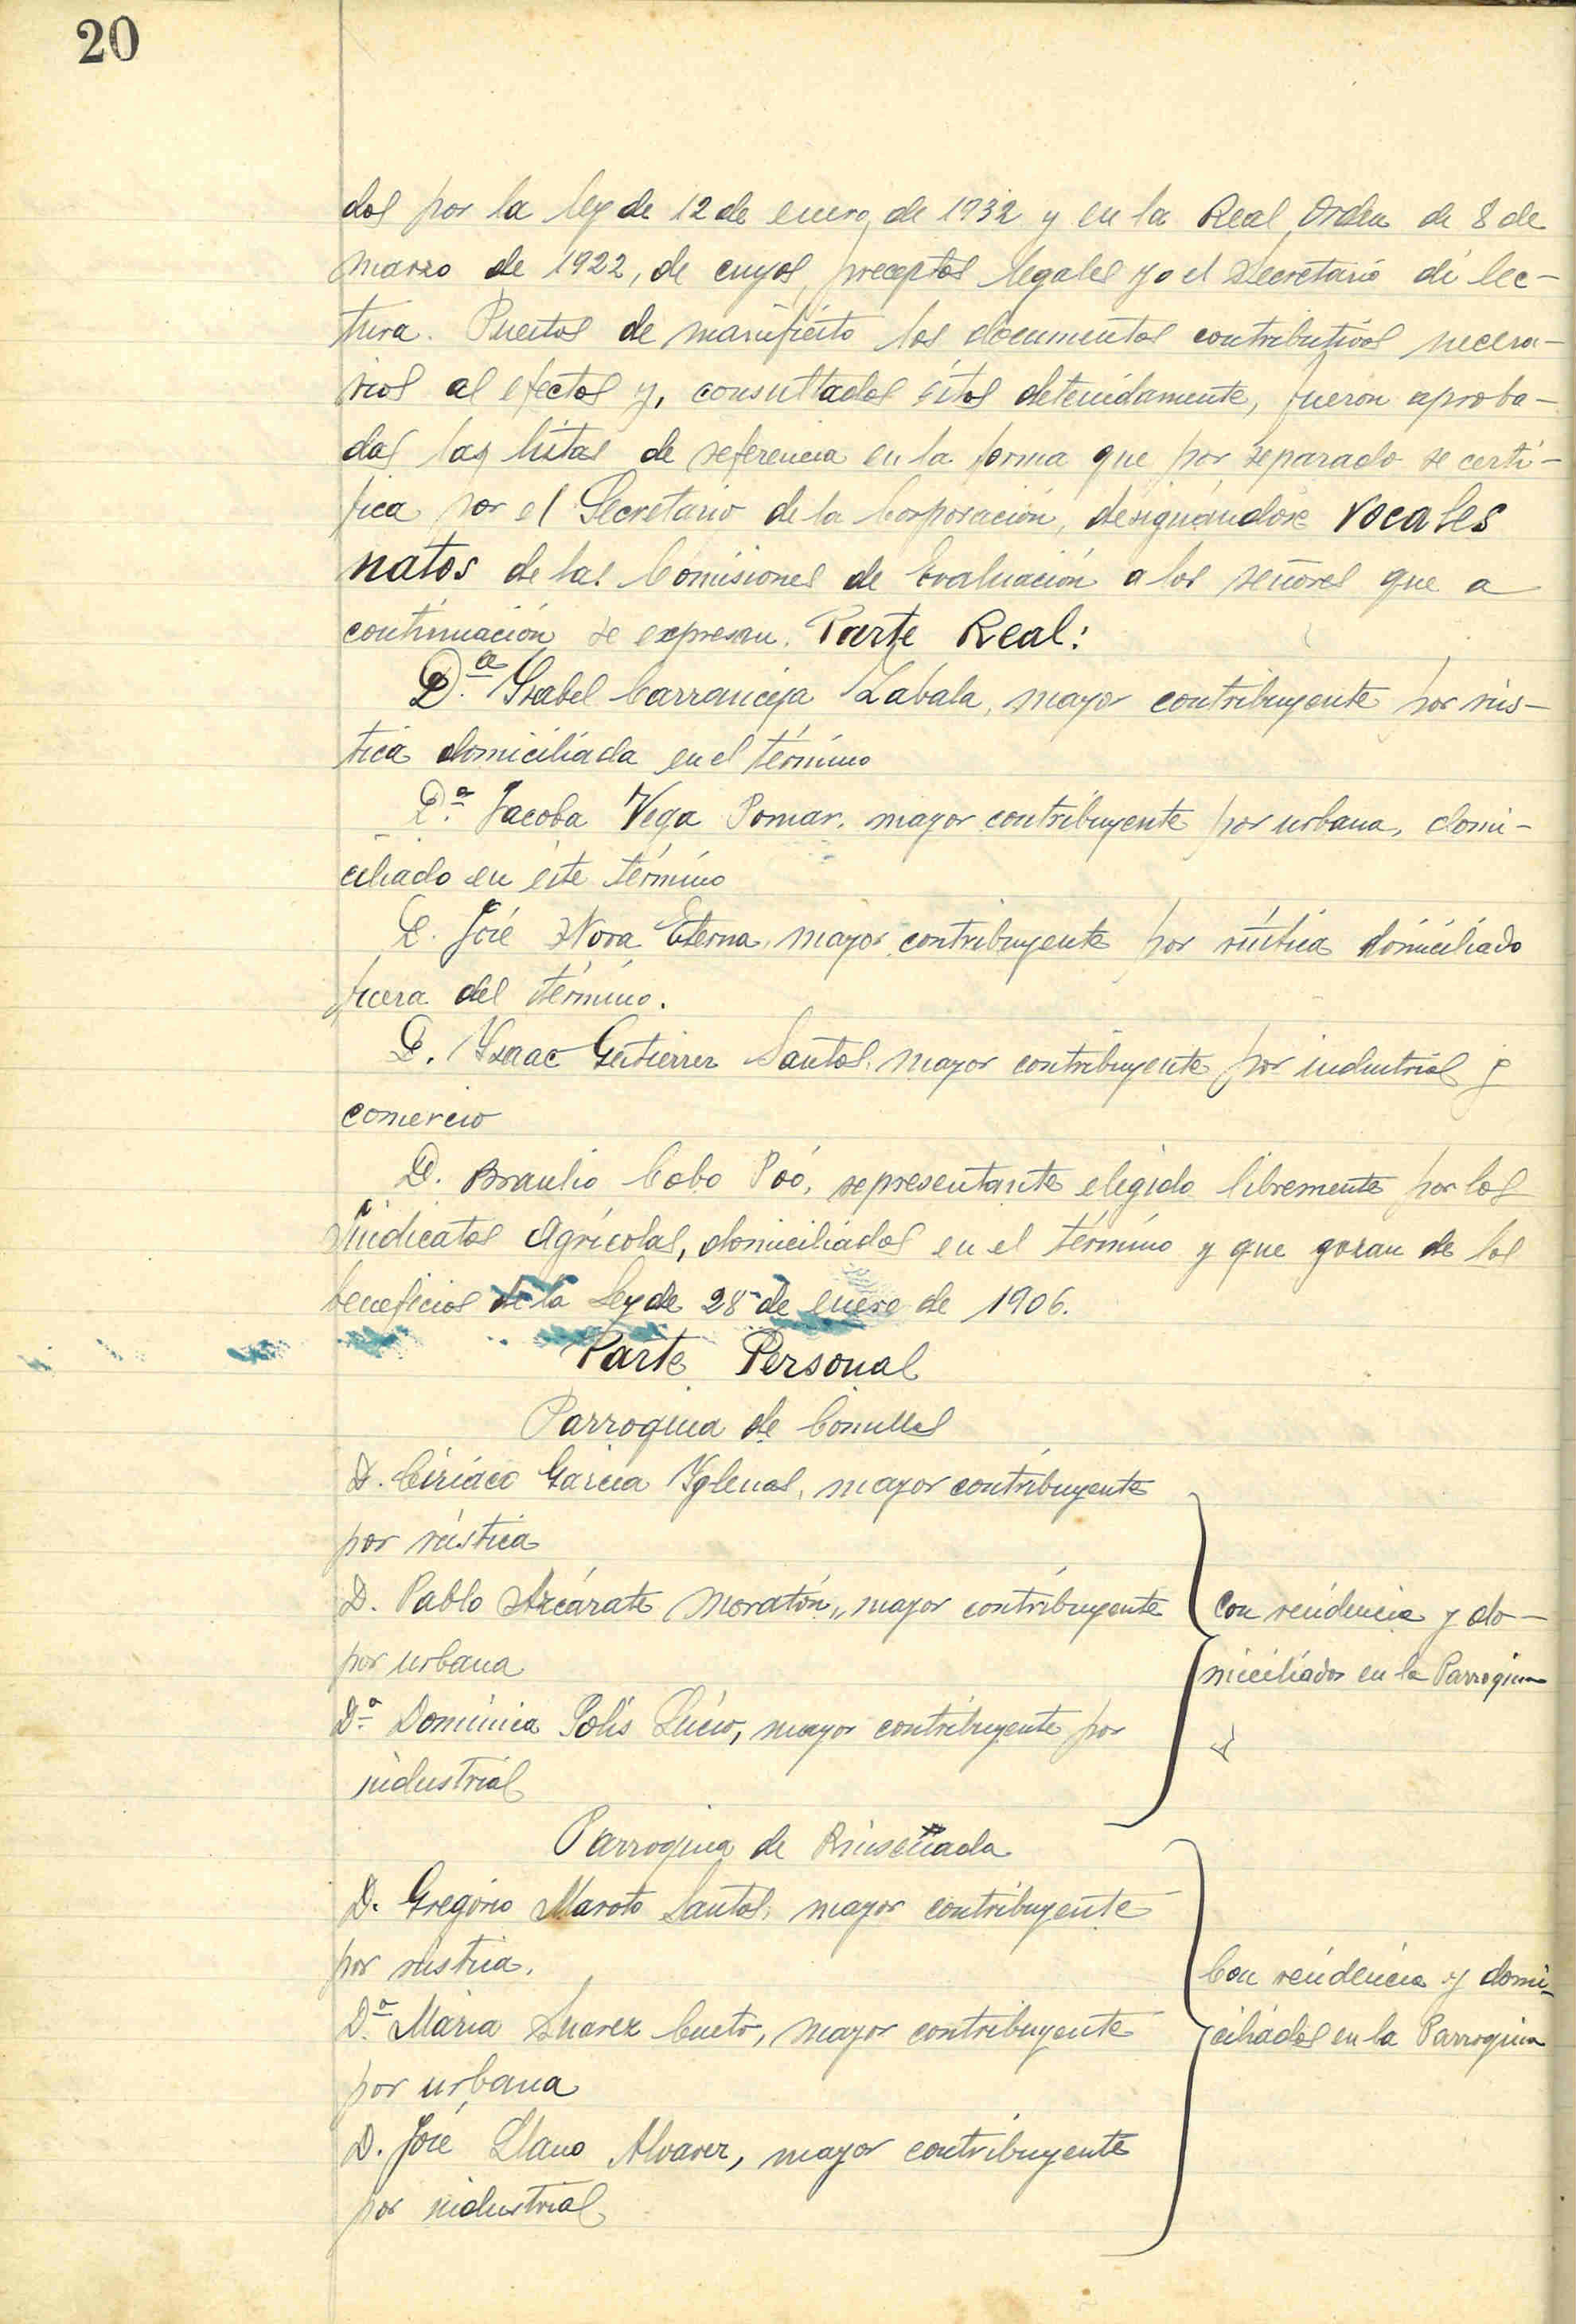 20
dos por la ley de 12 de enero de 1932 y en la Real Orden de 8 de
marzo de 1922, de cuyos preceptos legales yo el Secretario dí lec-
tura. Puestos de manifiesto los documentos contributivos necesa-
rios al efectos y, consultados éstos detenidamente, fueron aproba-
das las listas de referencia en la forma que por separado se certi-
fica por el Secretario de la Corporación, designándose vocales
natos de las Comisiones de Evaluación a los señores que a
continuación se expresan. Parte Real:
D.ª Ysabel Carranceja Zabala, mayor contribuyente por rús-
tica domiciliada en el término
D.ª Jacoba Vega Pomar, mayor contribuyente por urbana, domi-
ciliado en este término
D. José Nova Eterna, mayor contribuyente por rústica domiciliado
fuera del término.
D. Ysaac Gutierrez Santos, mayor contribuyente por industrial y
comercio
D. Braulio Cobo Poó, representante elegido libremente por los
Sindicatos Agrícolas, domiciliados en el término y que gozan de los
beneficios de la Ley de 28 de enero de 1906.
Parte Personal
Parroquia de Comillas
D. Ciriaco Garcia Yglesias, mayor contribuyente
por rústica
D. Pablo Azcárate Moratón, mayor contribuyente
por urbana
D.ª Dominica Polis Lucio, mayor contribuyente por
industrial
con residencia y do-
miciliados en la Parroquia
Parroquia de Ruiseñada
D. Gregorio Maroto Santos, mayor contribuyente
por rústica.
D.ª Maria Suarez Cueto, mayor contribuyente
por urbana
D. José Llano Alvarez, mayor contribuyente
por industrial
Con residencia y domi-
ciliados en la Parroquia